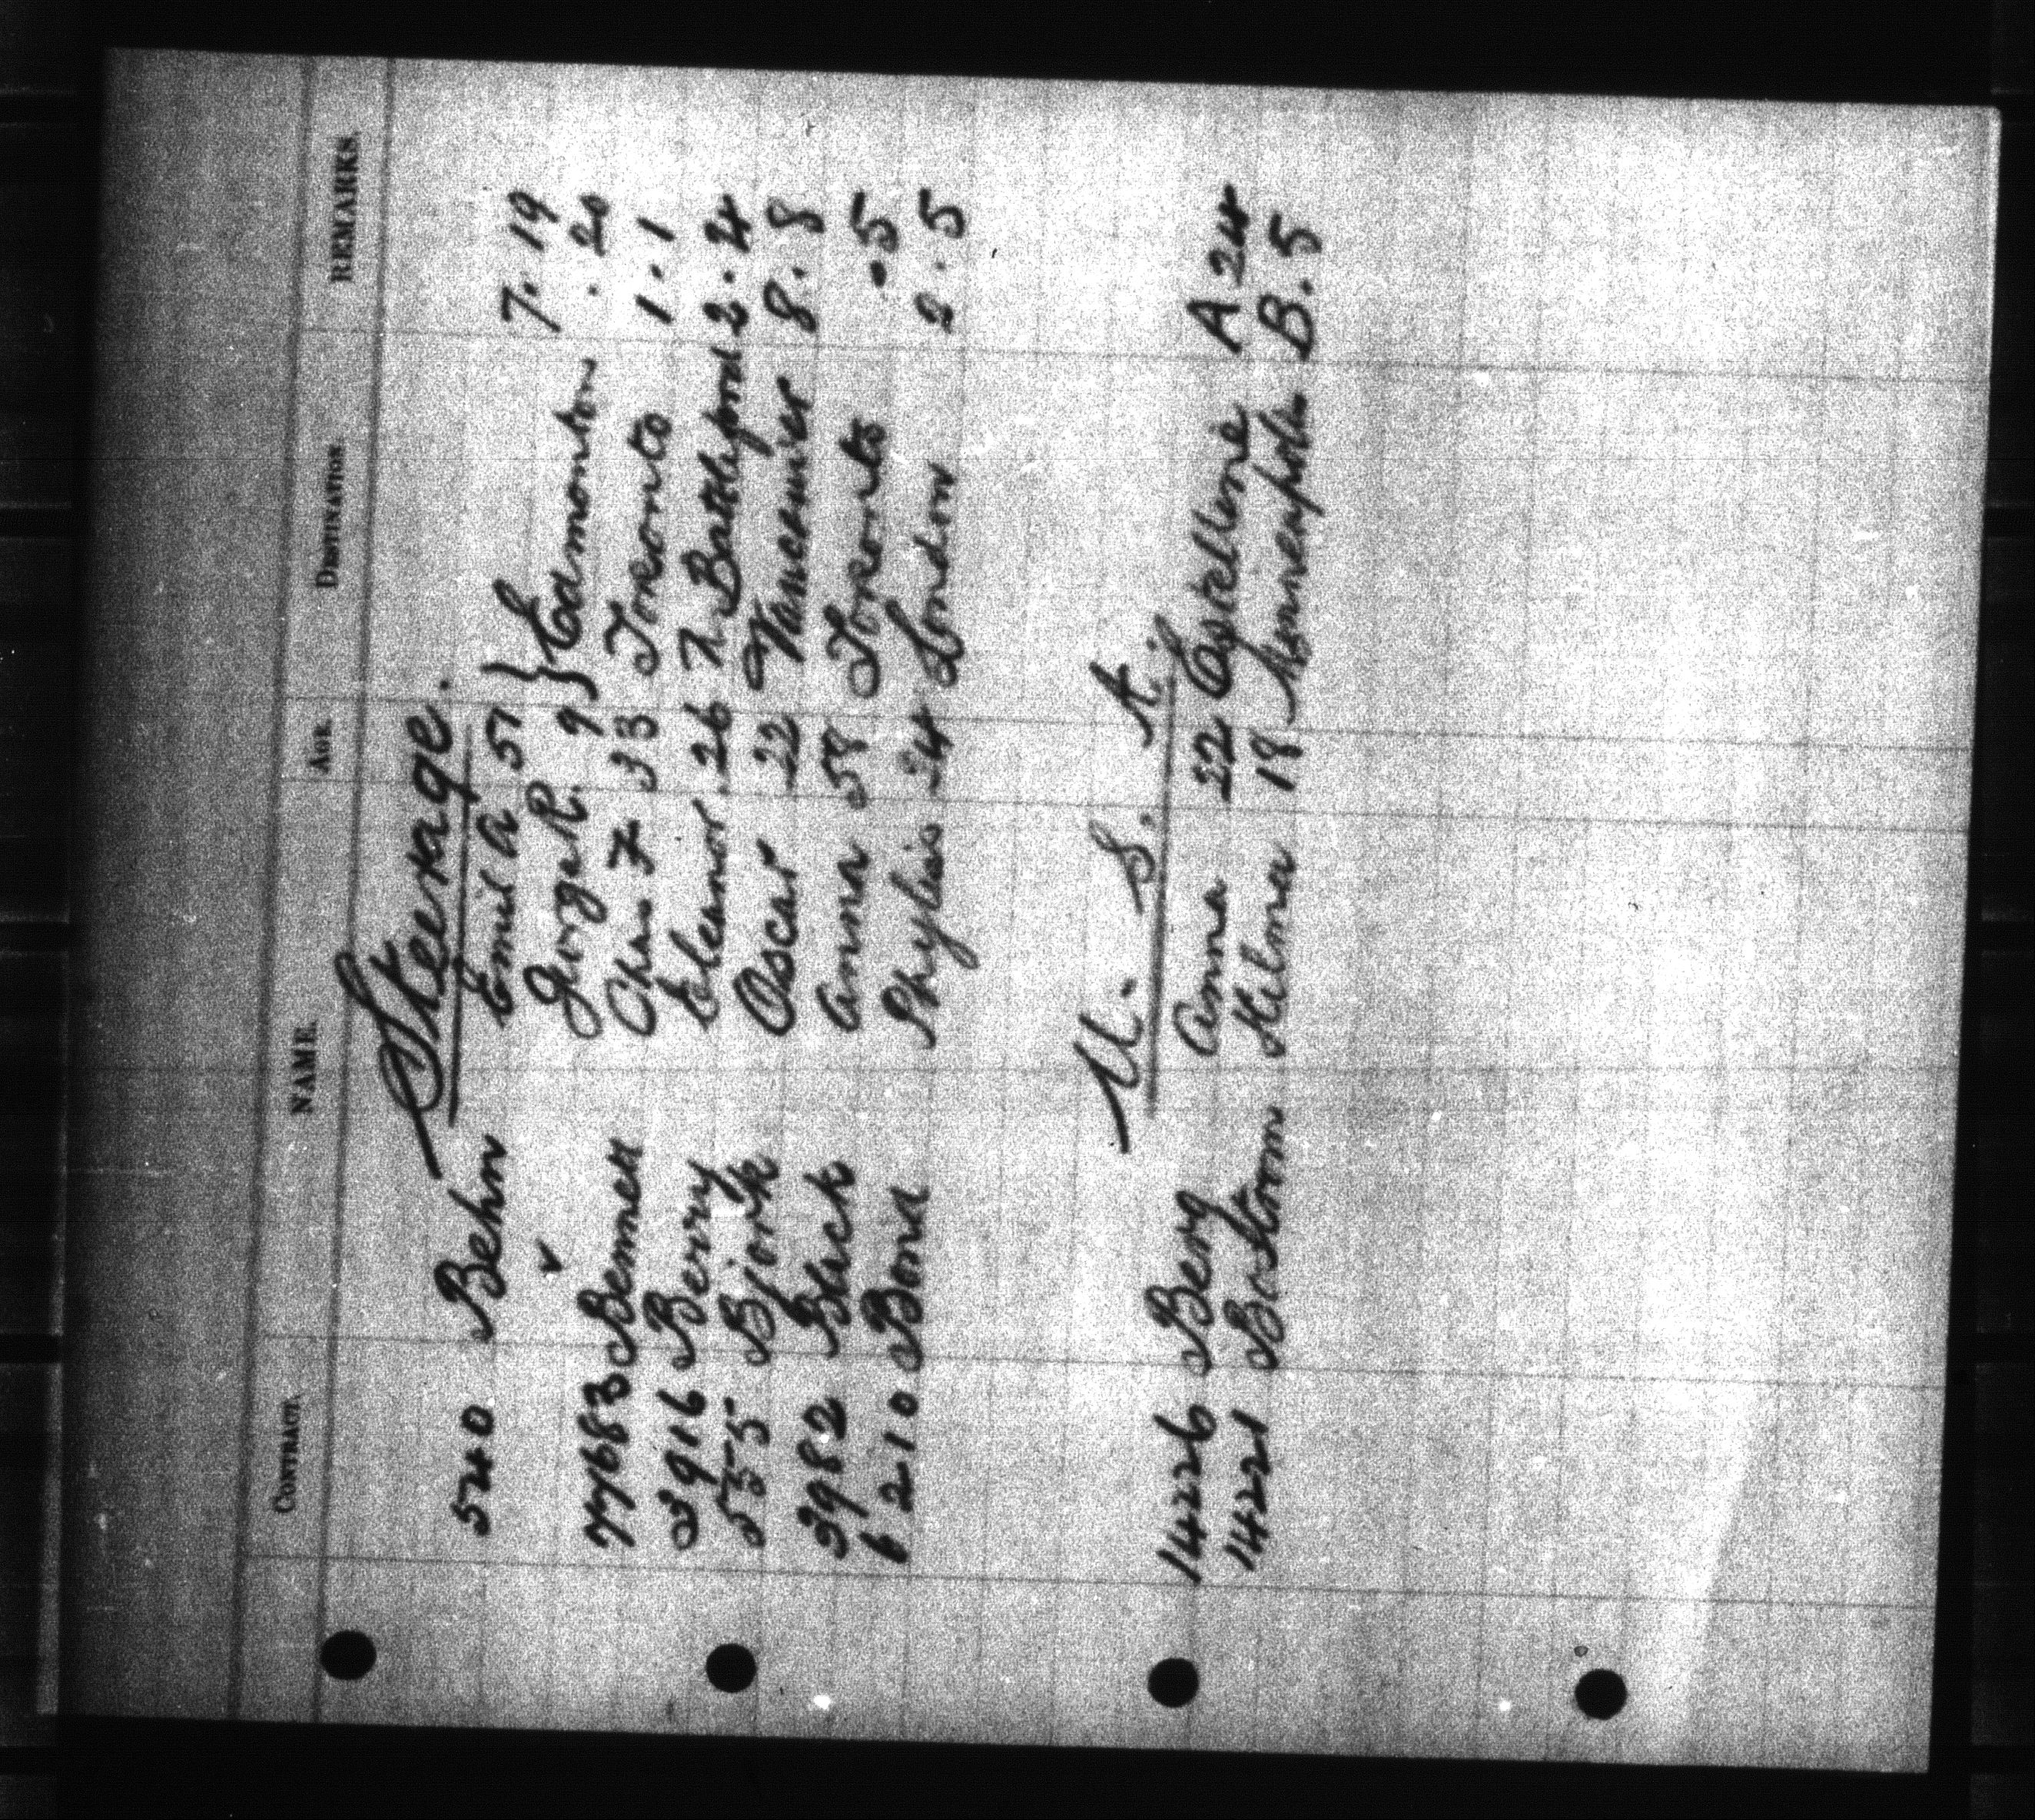 CONTRACT. NAME. AGE. DESTINATION REMARKS.
Steerage.
5240 Behn Emil A 57 } Edmonton 7. 19
✓ George R. 9 } . 20
77683 Bennett Chas F 33 Toronto 1. 1
3916 Berry Eleanor 26 N. Battleford 2. 4
555 Bjork Oscar 22 Vancouver 8. 8
3982 Black Anna 58 Toronto . 5
6210 Bond Phyllis 24 London 2. 5
U. S. A.
14226 Berg Anna 22 Estelline A 24
14221 Bostrom Hilma 18 Minneapolis B. 5